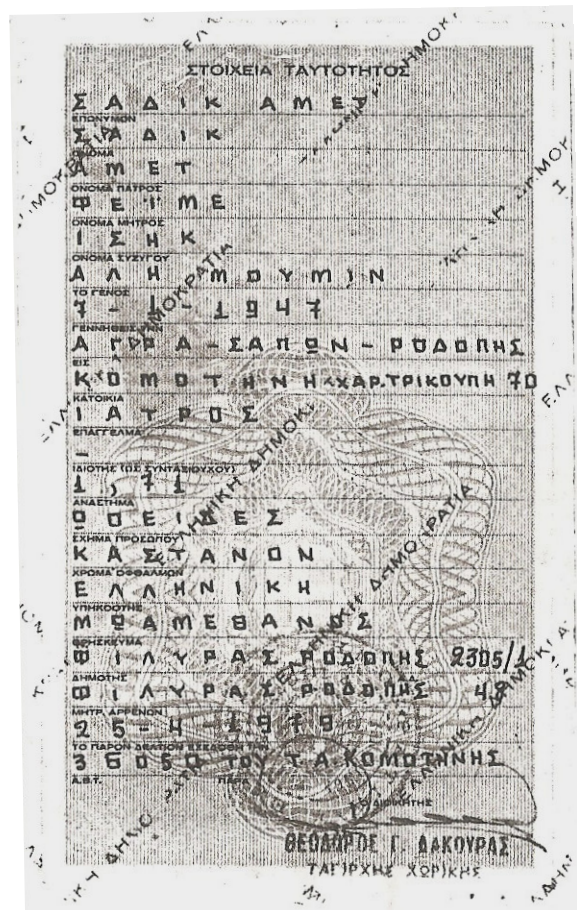 ΣΤΟΙΧΕΙΑ ΤΑΥΤΟΤΗΤΟΣ
ΣΑΔΙΚ ΑΜΕΤ
ΕΠΩΝΥΜΟΝ
ΣΑΔΙΚ
ΟΝΟΜΑ
ΑΜΕΤ
ΟΝΟΜΑ ΠΑΤΡΟΣ
ΦΕΙΜΕ
ΟΝΟΜΑ ΜΗΤΡΟΣ
ΙΣΗΚ
ΟΝΟΜΑ ΣΥΖΥΓΟΥ
ΑΛΗ ΜΟΥΜΙΝ
ΤΟ ΓΕΝΟΣ
7-1-1947
ΓΕΝΝΗΘΕΙΣ ΤΗΝ
ΑΓΡΑ-ΣΑΠΩΝ-ΡΟΔΟΠΗΣ
ΕΙΣ
ΚΟΜΟΤΗΝΗ ΧΑΡ.ΤΡΙΚΟΥΠΗ 70
ΚΑΤΟΙΚΙΑ
ΙΑΤΡΟΣ
ΕΠΑΓΓΕΛΜΑ
-
ΙΔΙΟΤΗΣ (ΩΣ ΣΥΝΤΑΞΙΟΥΧΟΥ)
1,71
ΑΝΑΣΤΗΜΑ
ΩΟΕΙΔΕΣ
ΣΧΗΜΑ ΠΡΟΣΩΠΟΥ
ΚΑΣΤΑΝΟΝ
ΧΡΩΜΑ ΟΦΘΑΛΜΩΝ
ΕΛΛΗΝΙΚΗ
ΥΠΗΚΟΟΤΗΣ
ΜΩΑΜΕΘΑΝΟΣ
ΘΡΗΣΚΕΥΜΑ
ΦΙΛΥΡΑΣ ΡΟΔΟΠΗΣ 2305/1
ΔΗΜΟΤΗΣ
ΦΙΛΥΡΑΣ ΡΟΔΟΠΗΣ 48
ΜΗΤΡ. ΑΡΡΕΝΩΝ
25-4-1979
ΤΟ ΠΑΡΟΝ ΔΕΛΤΙΟΝ ΕΞΕΔΟΘΗ ΤΗΝ
ΤΟΥ Τ.Α. ΚΟΜΟΤΗΝΗΣ
Α.Β.Τ.
Ο ΔΙΟΙΚΗΤΗΣ
ΘΕΟΔΩΡΟΣ Γ. ΔΑΚΟΥΡΑΣ
ΕΛΛΗΝΙΚΗ ΔΗΜΟΚΡΑΤΙΑ